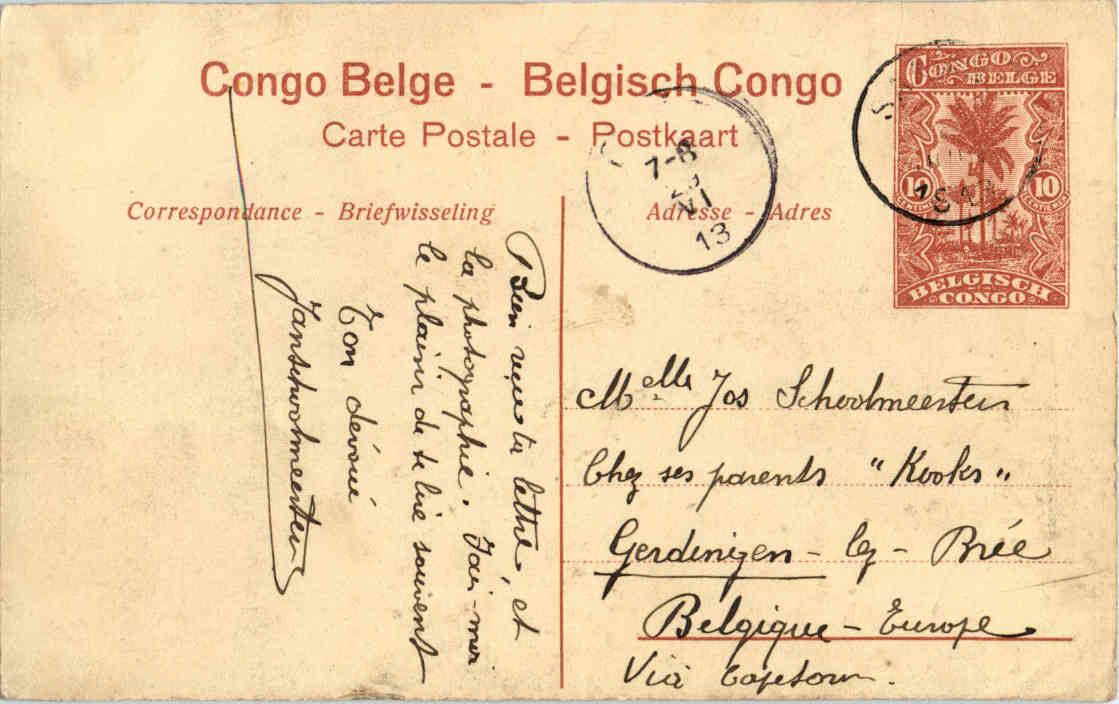 Congo Belge - Belgisch Congo
Carte Postale - Postkaart
Correspondance - Briefwisseling
Adresse - Adres
CONGO
BELGE
10 10
CENTIEMES CENTIEMEN
BELGISCH
CONGO
7-8
VI
13
Bien reçu ta lettre, et
la photographie.
le plaisir de te lire souvent
Ton dévoué
Janschoolmeesters
Melle Jos Schoolmeesters
Chez ses parents "Kooks"
Gerdingen - lez - Brée
Belgique - Europe
Via Capetown.